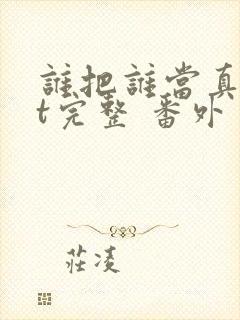 誰把誰當真
t完整 番外
莊凌